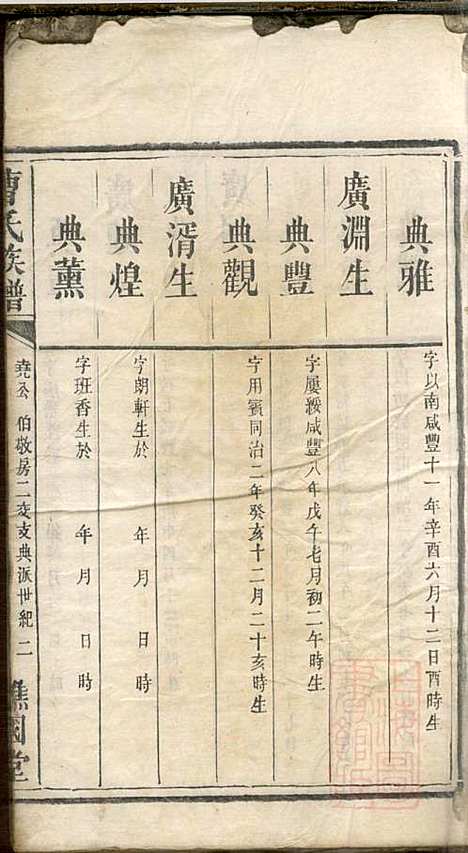 典雅
字以南咸豐十一年辛酉六月十二日酉時生
廣淵生
典豐
字屢綏咸豐八年戊午七月初二午時生
典觀
字用賓同治二年癸亥十二月二十亥時生
廣湑生
典煌
字朗軒生於 年 月 日 時
典薰
字班香生於 年 月 日 時
曹氏族譜
堯公 伯敬房二䆁支典派世紀 二
譙國堂